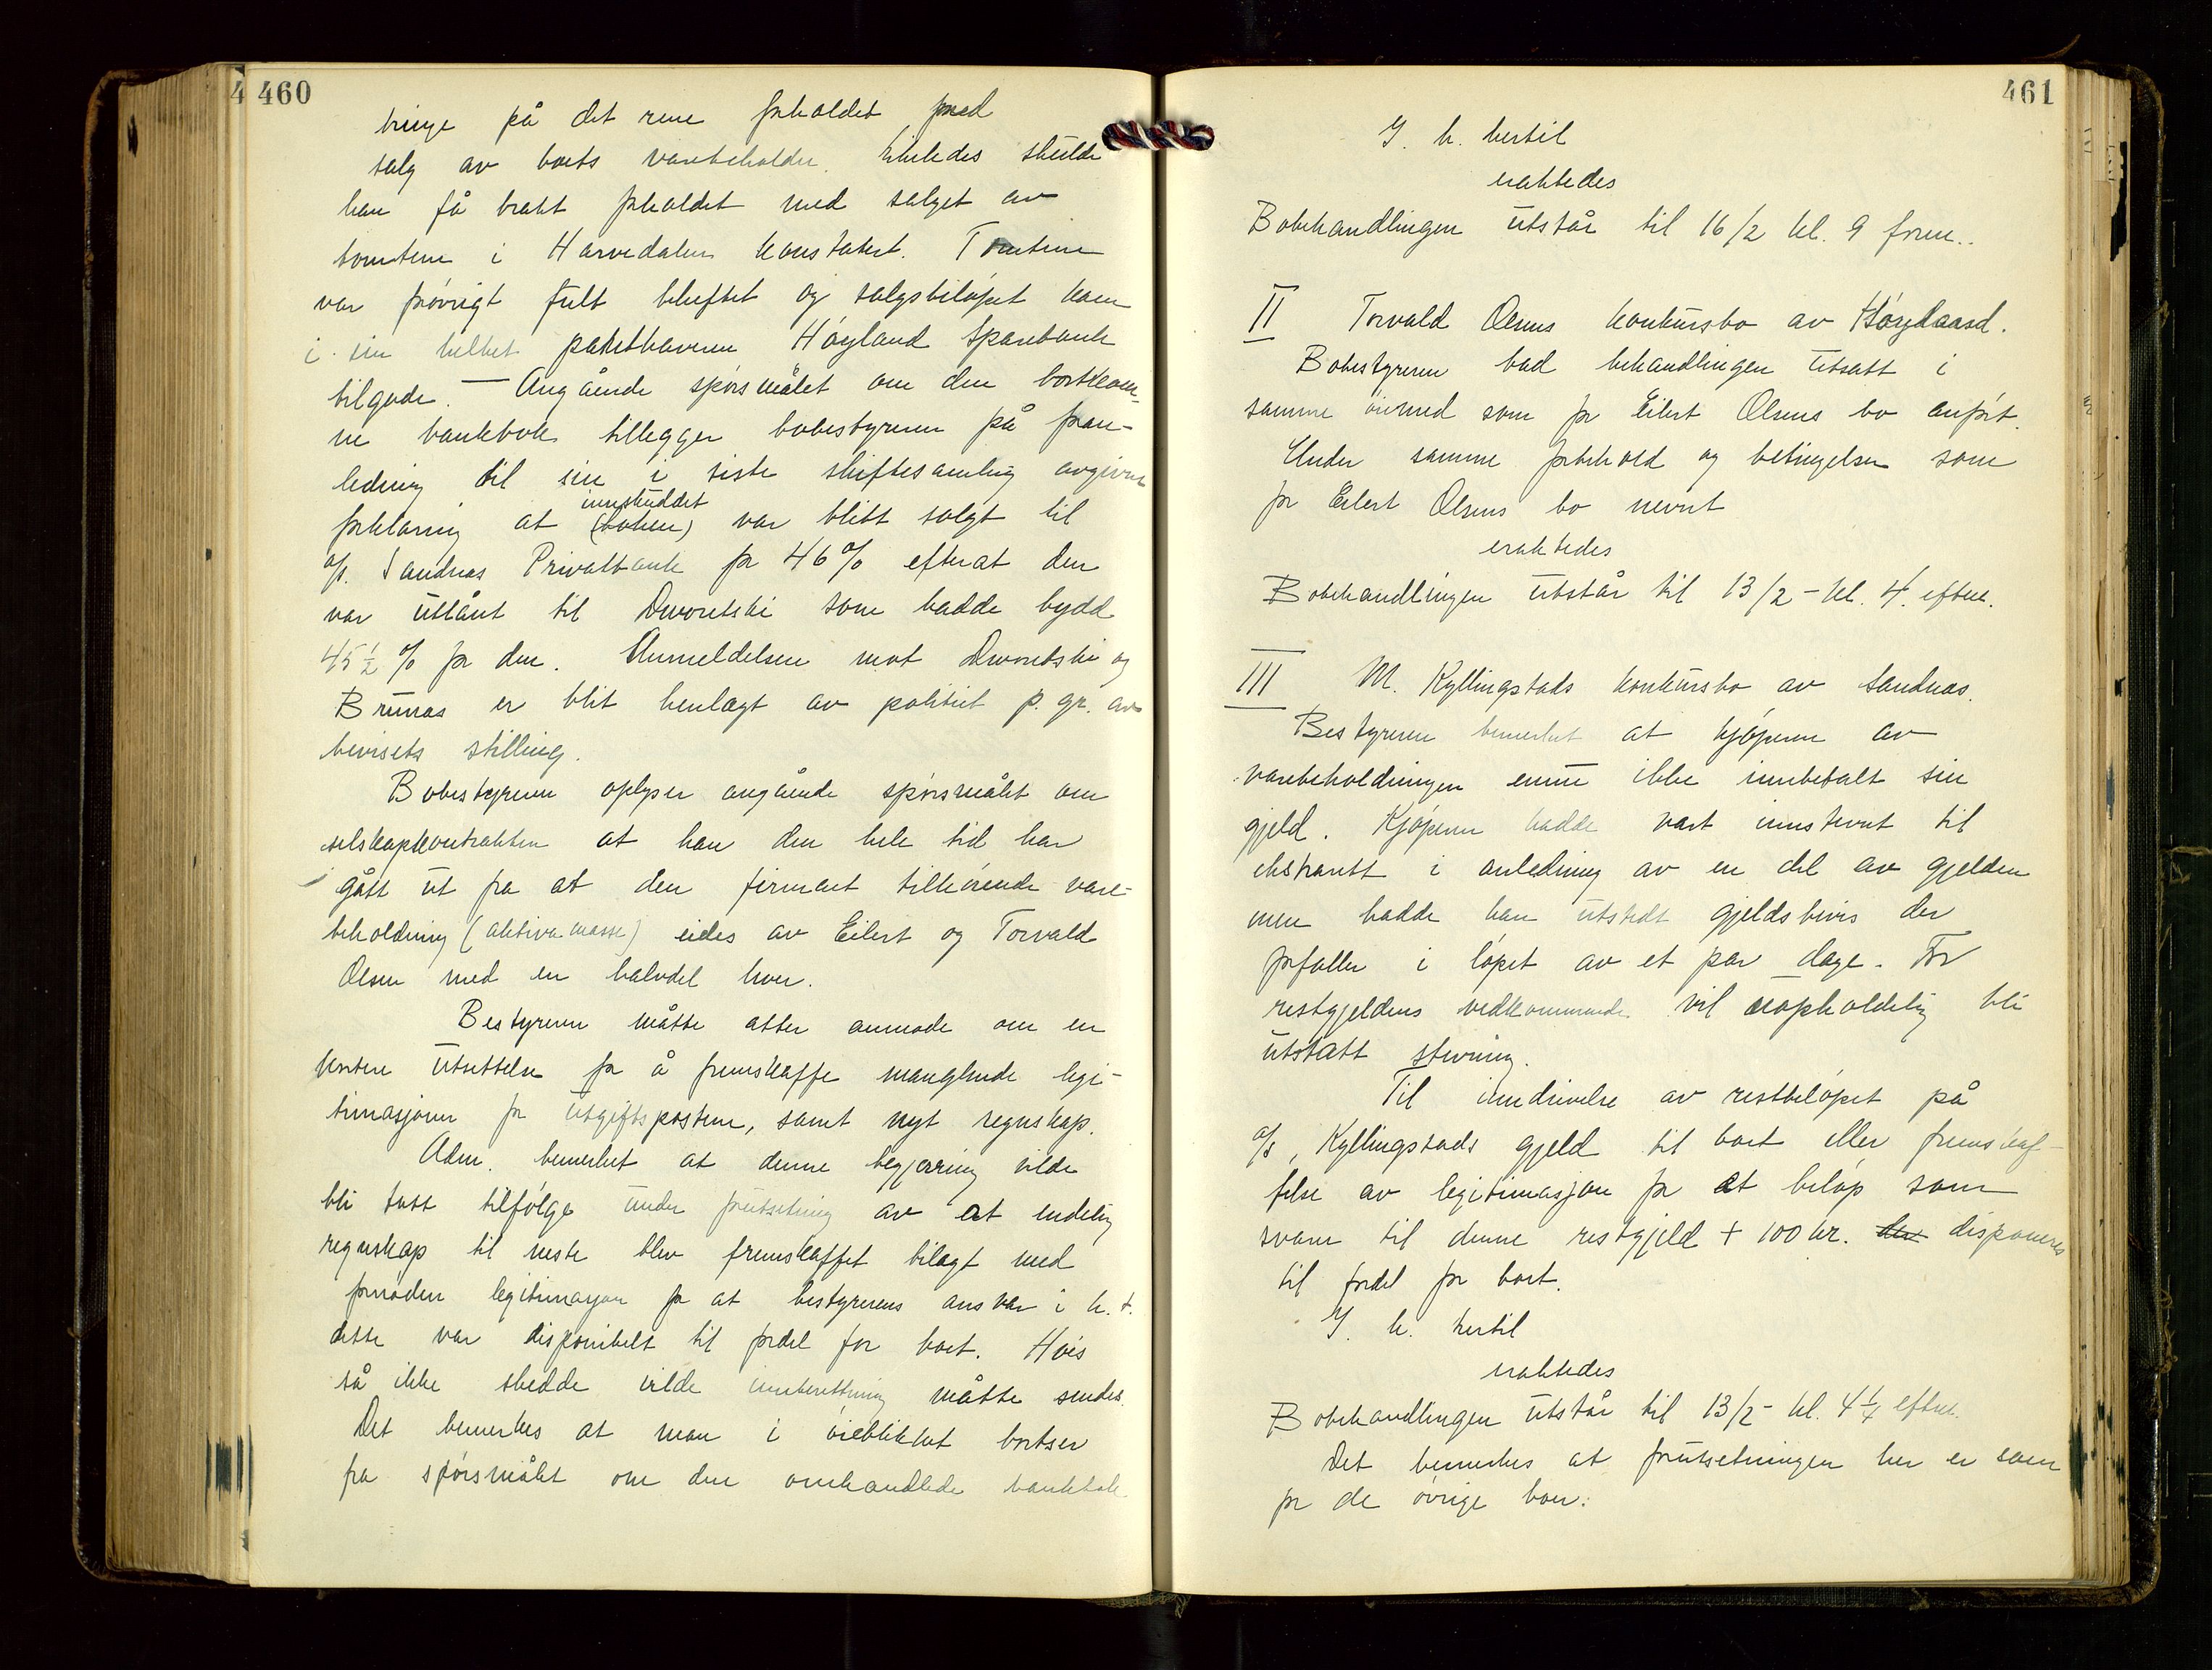 460
bringe på det rene forholdet med
salg av boets varebeholdn. Likeledes skulde
han få brakt forholdet med salget av
tomtene i Harvedalen konstatert. Tomtene
var forøvrigt fult beheftet og salgsbeløpet kom
i sin helhet panthaveren Høyland Sparebank
tilgode. — Angående spørsmålet om den bortkom-
ne bankbok tillegger bobestyreren på foran-
ledning til sin i siste skiftesamling avgivne
forklaring at (boken) innskuddet var blitt solgt til
a/s. Sandnes Privatbank for 46 % efterat den
var utlånt til Dworetski som hadde bydd
45 ½ % for den. Anmeldelsen mot Dworetski og
Brunas er blit henlagt av politiet p. gr. av
bevisets stilling.
Bobestyreren oplyser angående spørsmålet om
selskapskontrakten at han den hele tid har
gått ut fra at den firmaet tilhørende vare-
beholdning (aktiva masse) eides av Eilert og Torvald
Olsen med en halvdel hver.
Bestyreren måtte atter anmode om en
kortere utsettelse for å fremskaffe manglende legi-
timasjoner for utgiftspostene, samt nyt regnskap.
Adm. bemerket at denne begjæring vilde
bli tatt tilfølge under forutsetning av at endelig
regnskap til neste blev fremskaffet bilagt med
fornøden legitimasjon for at bestyrerens ansvar i h. t.
dette var disponibelt til fordel for boet. Hvis
så ikke skedde vilde innberetning måtte sendes.
Det bemerkes at man i øieblikket bortser
fra spørsmålet om den omhandlede bankbok
461
I. h. hertil
eraktedes
Bobehandlingen utstår til 16/2 kl. 9 form..
II Torvald Olsens konkursbo av Høyland.
Bobestyreren bad behandlingen utsatt i
samme øiemed som for Eilert Olsens bo anført.
Under samme forbehold og betingelser som
for Eilert Olsens bo nevnt
eraktedes
Bobehandlingen utstår til 13/2 - kl. 4. efterm.
III M. Kyllingstads konkursbo av Sandnes.
Bestyreren bemerket at kjøperen av
varebeholdningen ennu ikke innbetalt sin
gjeld. Kjøperen hadde vært innstevnt til
ekstrarett i anledning av en del av gjelden
men hadde han utstedt gjeldsbevis der
forfaller i løpet av et par dage. For
restgjeldens vedkommende vil uopholdelig bli
utstatt stevning.
Til inndrivelse av restbeløpet på
a/s, Kyllingstads gjeld til boet eller fremskaf-
felse av legitimasjon for at beløp som
svarer til denne restgjeld + 100 kr. der disponeres
til fordel for boet.
I. h. hertil
eraktedes
Bobehandlingen utstår til 13/2 - kl. 4 ¼ efterm.
Det bemerkes at forutsetningen her er som
for de øvrige boer.